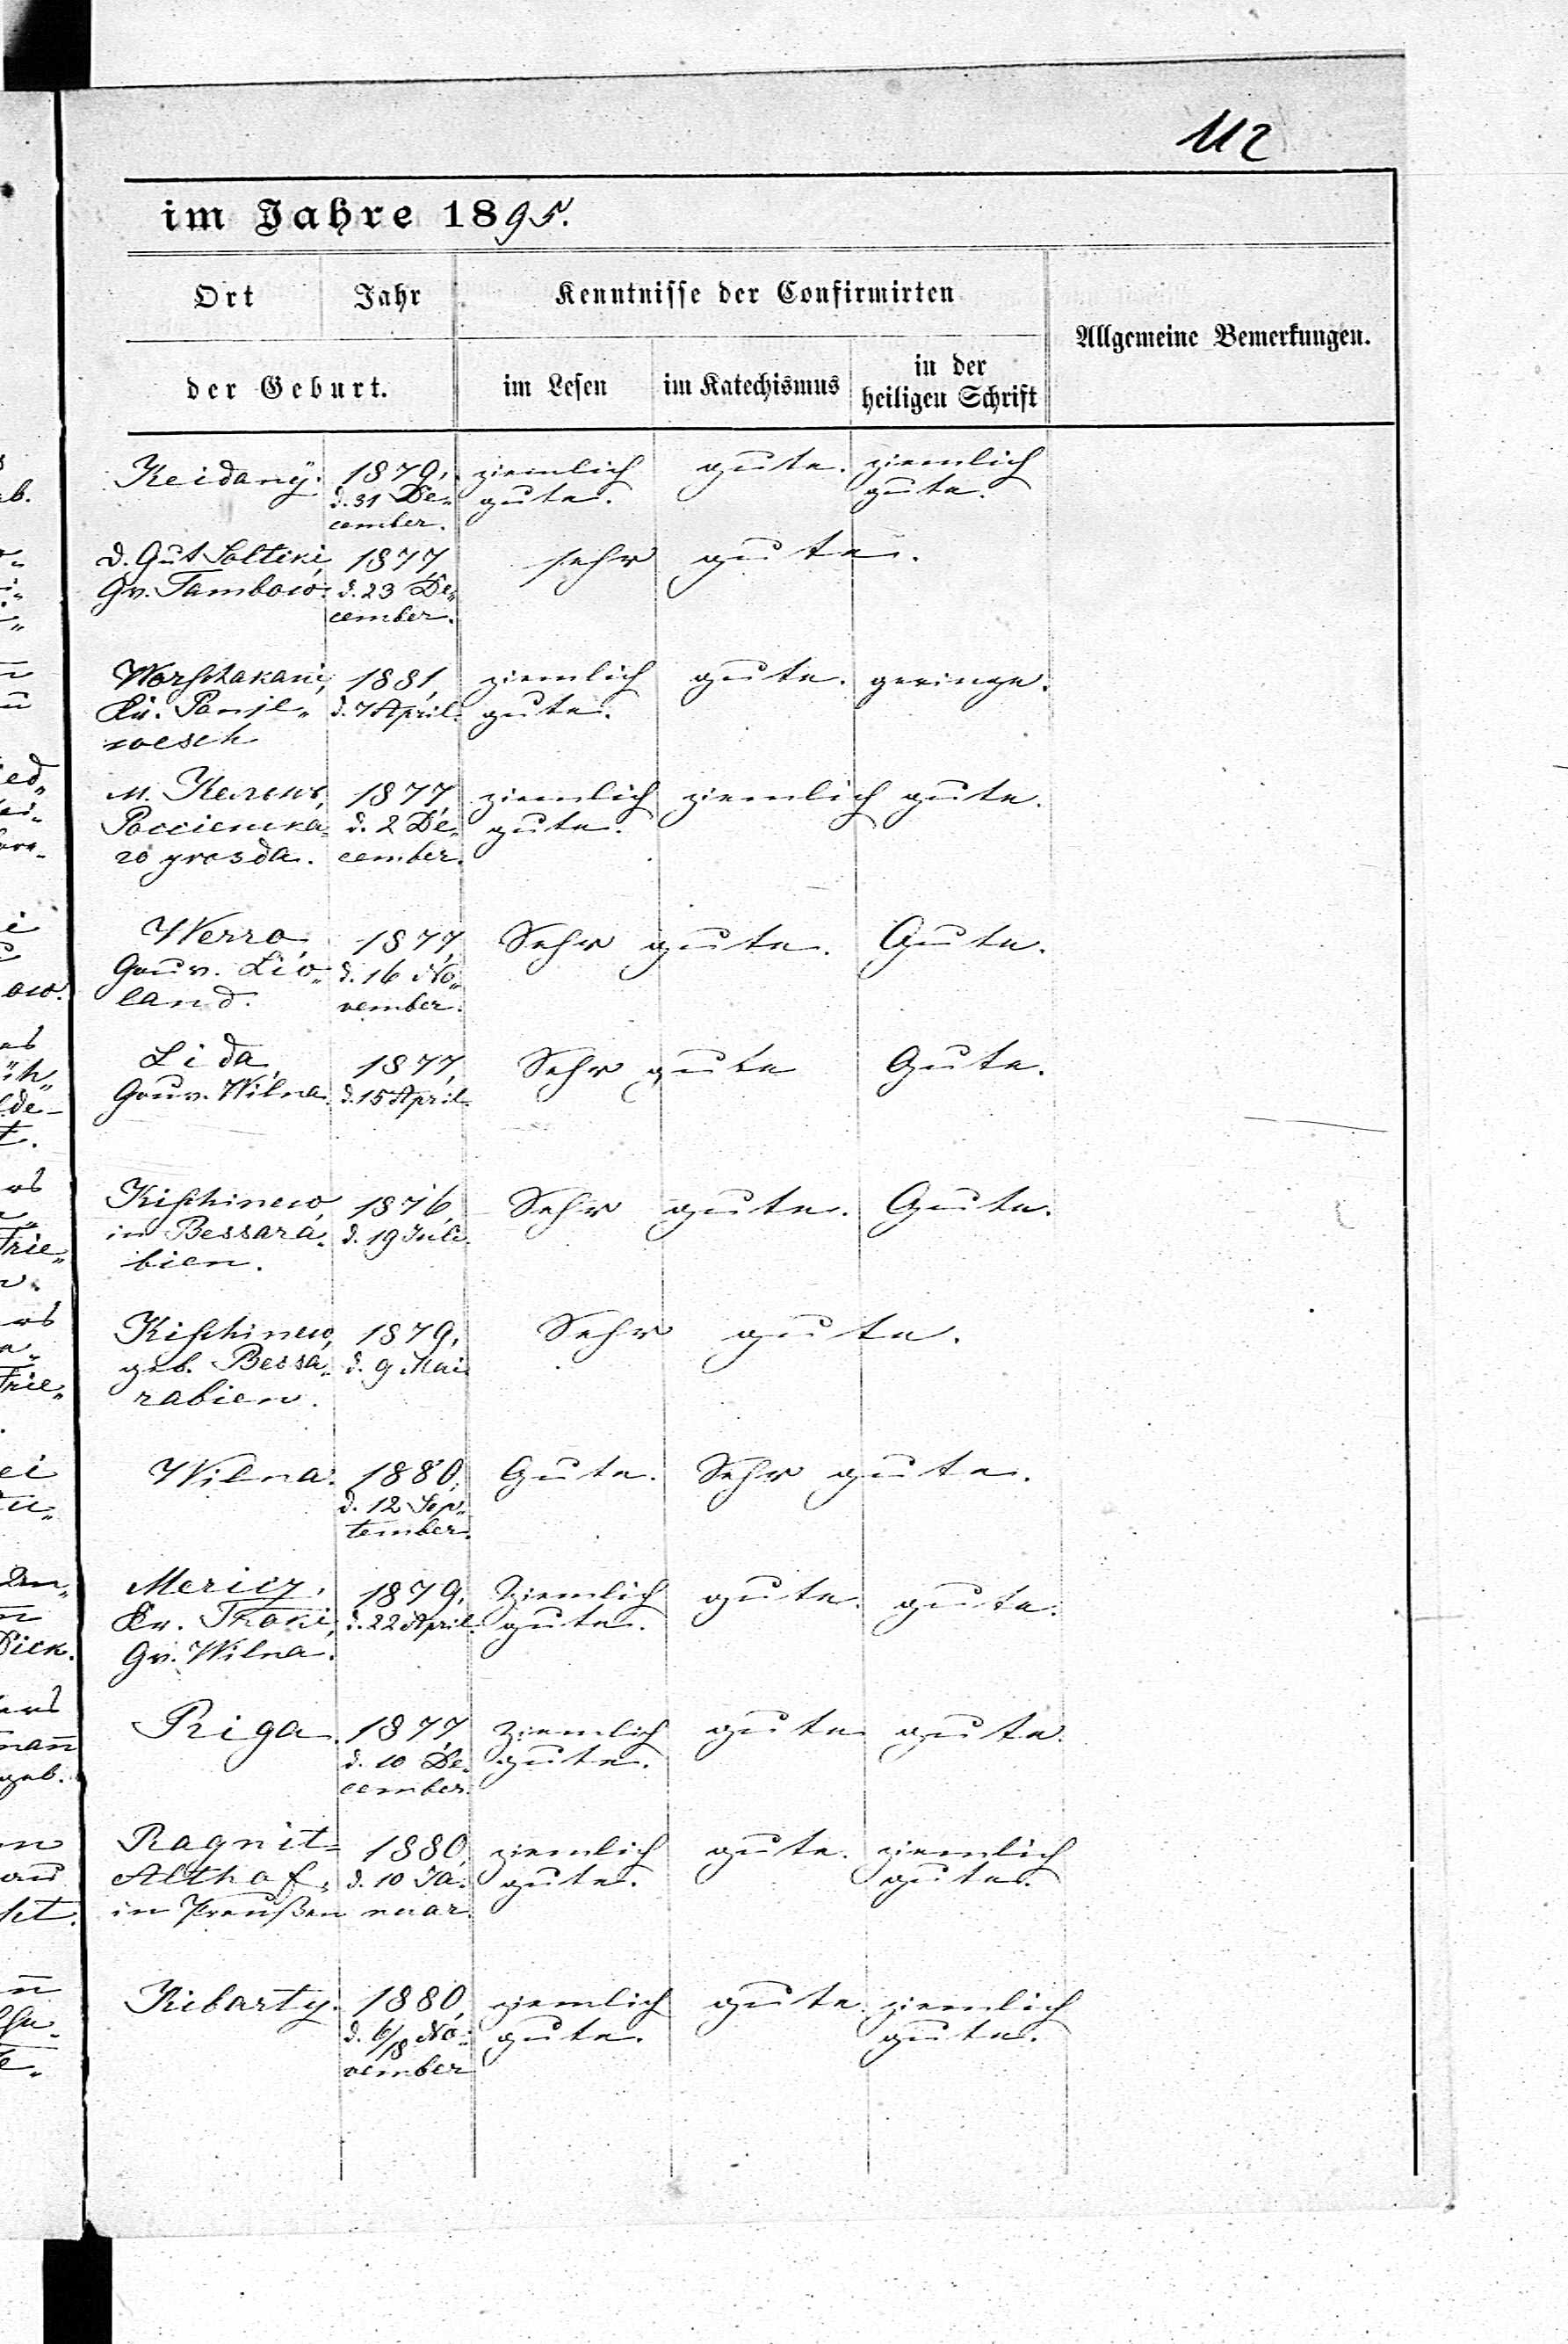 112
im Jahre 1895.
Ort Jahr Kenntnisse der Confirmirten Allgemeine Bemerkungen.
der Geburt. im Lesen im Katechismus in der heiligen Schrift
Keidany. 1879, ziemlich gute. ziemlich
d. 31 De- gute. gute.
cember.
d. Gut Soltiki, 1877, sehr gute.
Gv. Tambow. d. 23 De-
cember.
1881, ziemlich gute. geringe.
Kr. d. 7 April. gute.
wesch
M. 1877, ziemlich ziemlich gute.
d. 2 De- gute.
cember.
Werro, 1877, Sehr gute. Gute.
Gouv. Liv- d. 16 No-
land. vember.
Lida, 1877, Sehr gute Gute.
Gouv. Wilna. d. 15 April.
Kischinew, 1876, Sehr gute. Gute.
in Bessara- d. 19 Juli.
bien.
Kischinew, 1879, Sehr gute.
geb. Bessa- d. 9 Mai.
rabien.
Wilna. 1880, Gute. Sehr gute.
d. 12 Sep-
tember.
Mericz, 1879, Ziemlich gute. gute.
Kr. Troki, d. 22 April. gute.
Gv. Wilna.
Riga. 1877, Ziemlich gute gute.
d. 10 De- gute.
cember.
Ragnit- 1880, ziemlich gute. ziemlich
Althof, d. 10 Ja- gute. gute.
in Preußen nuar.
Kibarty. 1880, ziemlich gute. ziemlich
d. 6/18 No- gute. gute.
vember